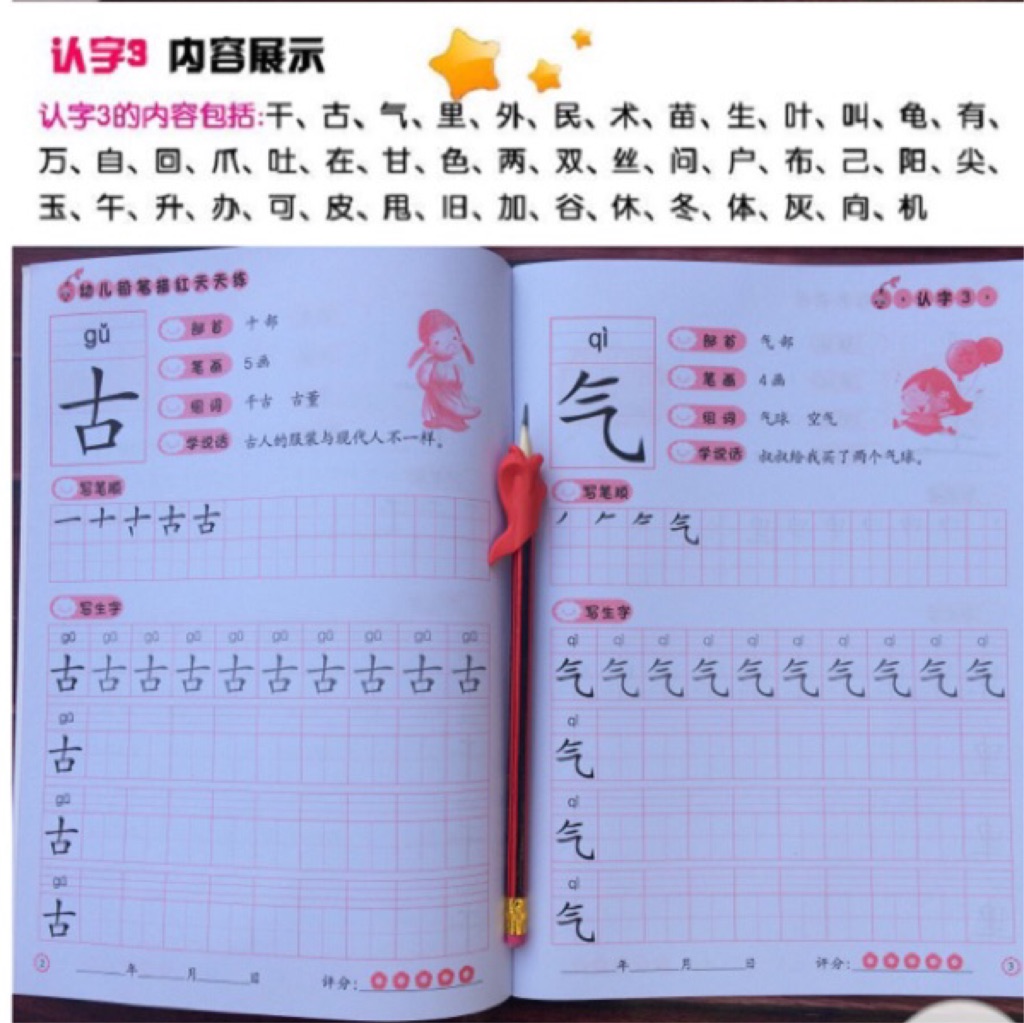 认字3 内容展示
认字3的内容包括:干、古、气、里、外、民、术、苗、生、叶、叫、龟、有、
万、自、回、爪、吐、在、甘、色、两、双、丝、问、户、布、己、阳、尖、
玉、午、升、办、可、皮、甩、旧、加、谷、休、冬、体、灰、向、机
幼儿铅笔描红天天练
gǔ
古
部首 十部
笔画 5画
组词 千古 古董
学说话 古人的服装与现代人不一样。
写笔顺
一 十 古 古
写生字
gǔ gǔ gǔ gǔ gǔ gǔ gǔ gǔ gǔ gǔ
古 古 古 古 古 古 古 古 古 古
gǔ
古
gǔ
古
gǔ
古
2
年 月 日 评分:
认字3
qì
气
部首 气部
笔画 4画
组词 气球 空气
学说话 叔叔给我买了两个气球。
写笔顺
气
写生字
qì qì qì qì qì qì qì qì qì qì
气 气 气 气 气 气 气 气 气 气
qì
气
qì
气
qì
气
年 月 日 评分:
3